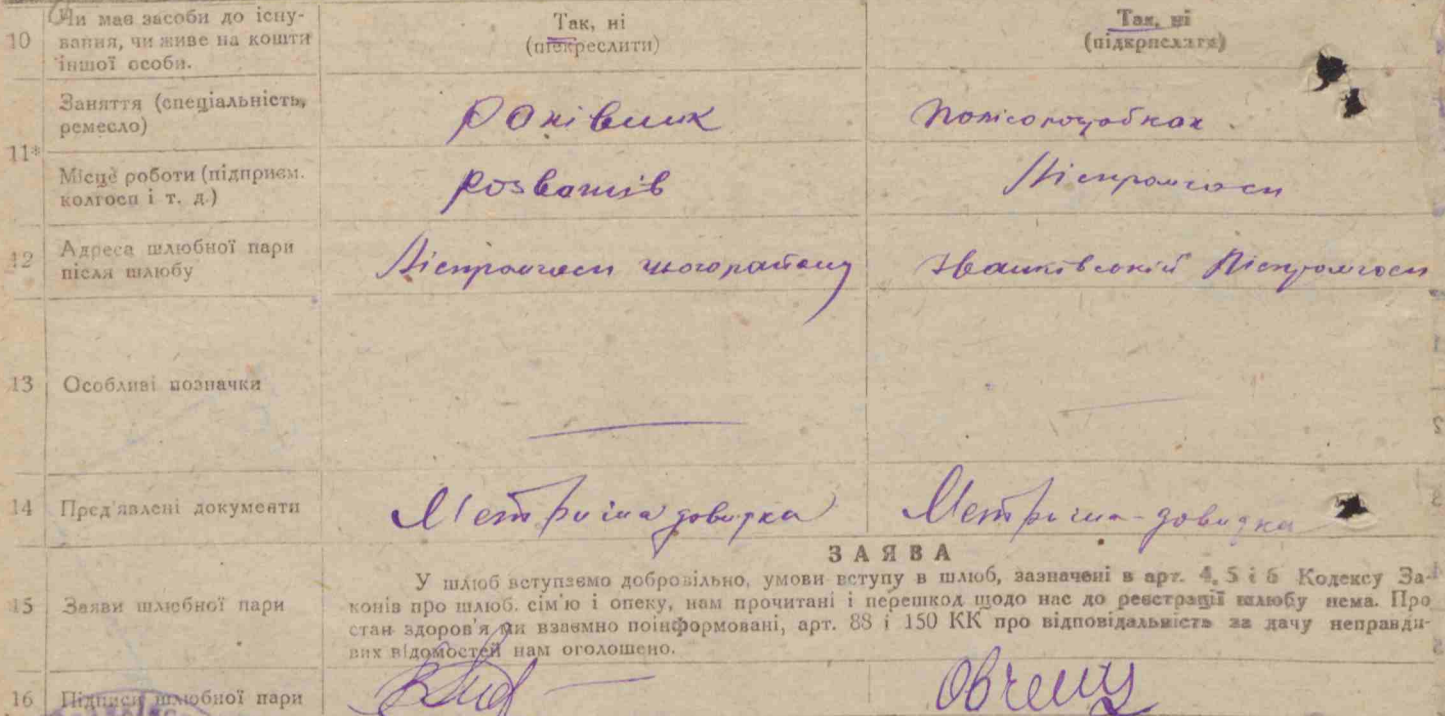 10 Чи має засоби до існу-
вання, чи живе на кошти
іншої особи.
Так, ні
(підкреслити)
Так, ні
(підкреслити)
11*
Заняття (спеціальність,
ремесло)
Місце роботи (підприєм.
колгосп і т. д.)
розважів
Ліспромгосп
12 Адреса шлюбної пари
після шлюбу
Ліспромгосп цього району
Іванківський Ліспромгосп
13 Особливі позначки
14 Пред'явлені документи
Метрична довідка
Метрична-довідка
ЗАЯВА
15 Заяви шлюбної пари
У шлюб вступаємо добровільно, умови вступу в шлюб, зазначені в арт. 4, 5 і 6 Кодексу За-
конів про шлюб. сім'ю і опеку, нам прочитані і перешкод щодо нас до реєстрації шлюбу нема. Про
стан здоров'я ми взаємно поінформовані, арт. 88 і 150 КК про відповідальність за дачу неправди-
вих відомостей нам оголошено.
16 Підписи шлюбної пари